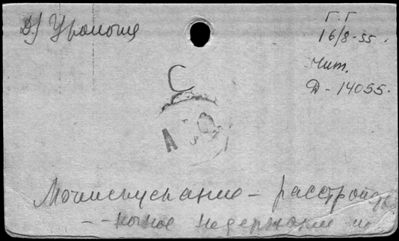 Д/ Урология
ГГ
16/8-55.
Чит.
Д-14055.
С
А
Мочеиспускание - расстройств
-- ночное недержание м